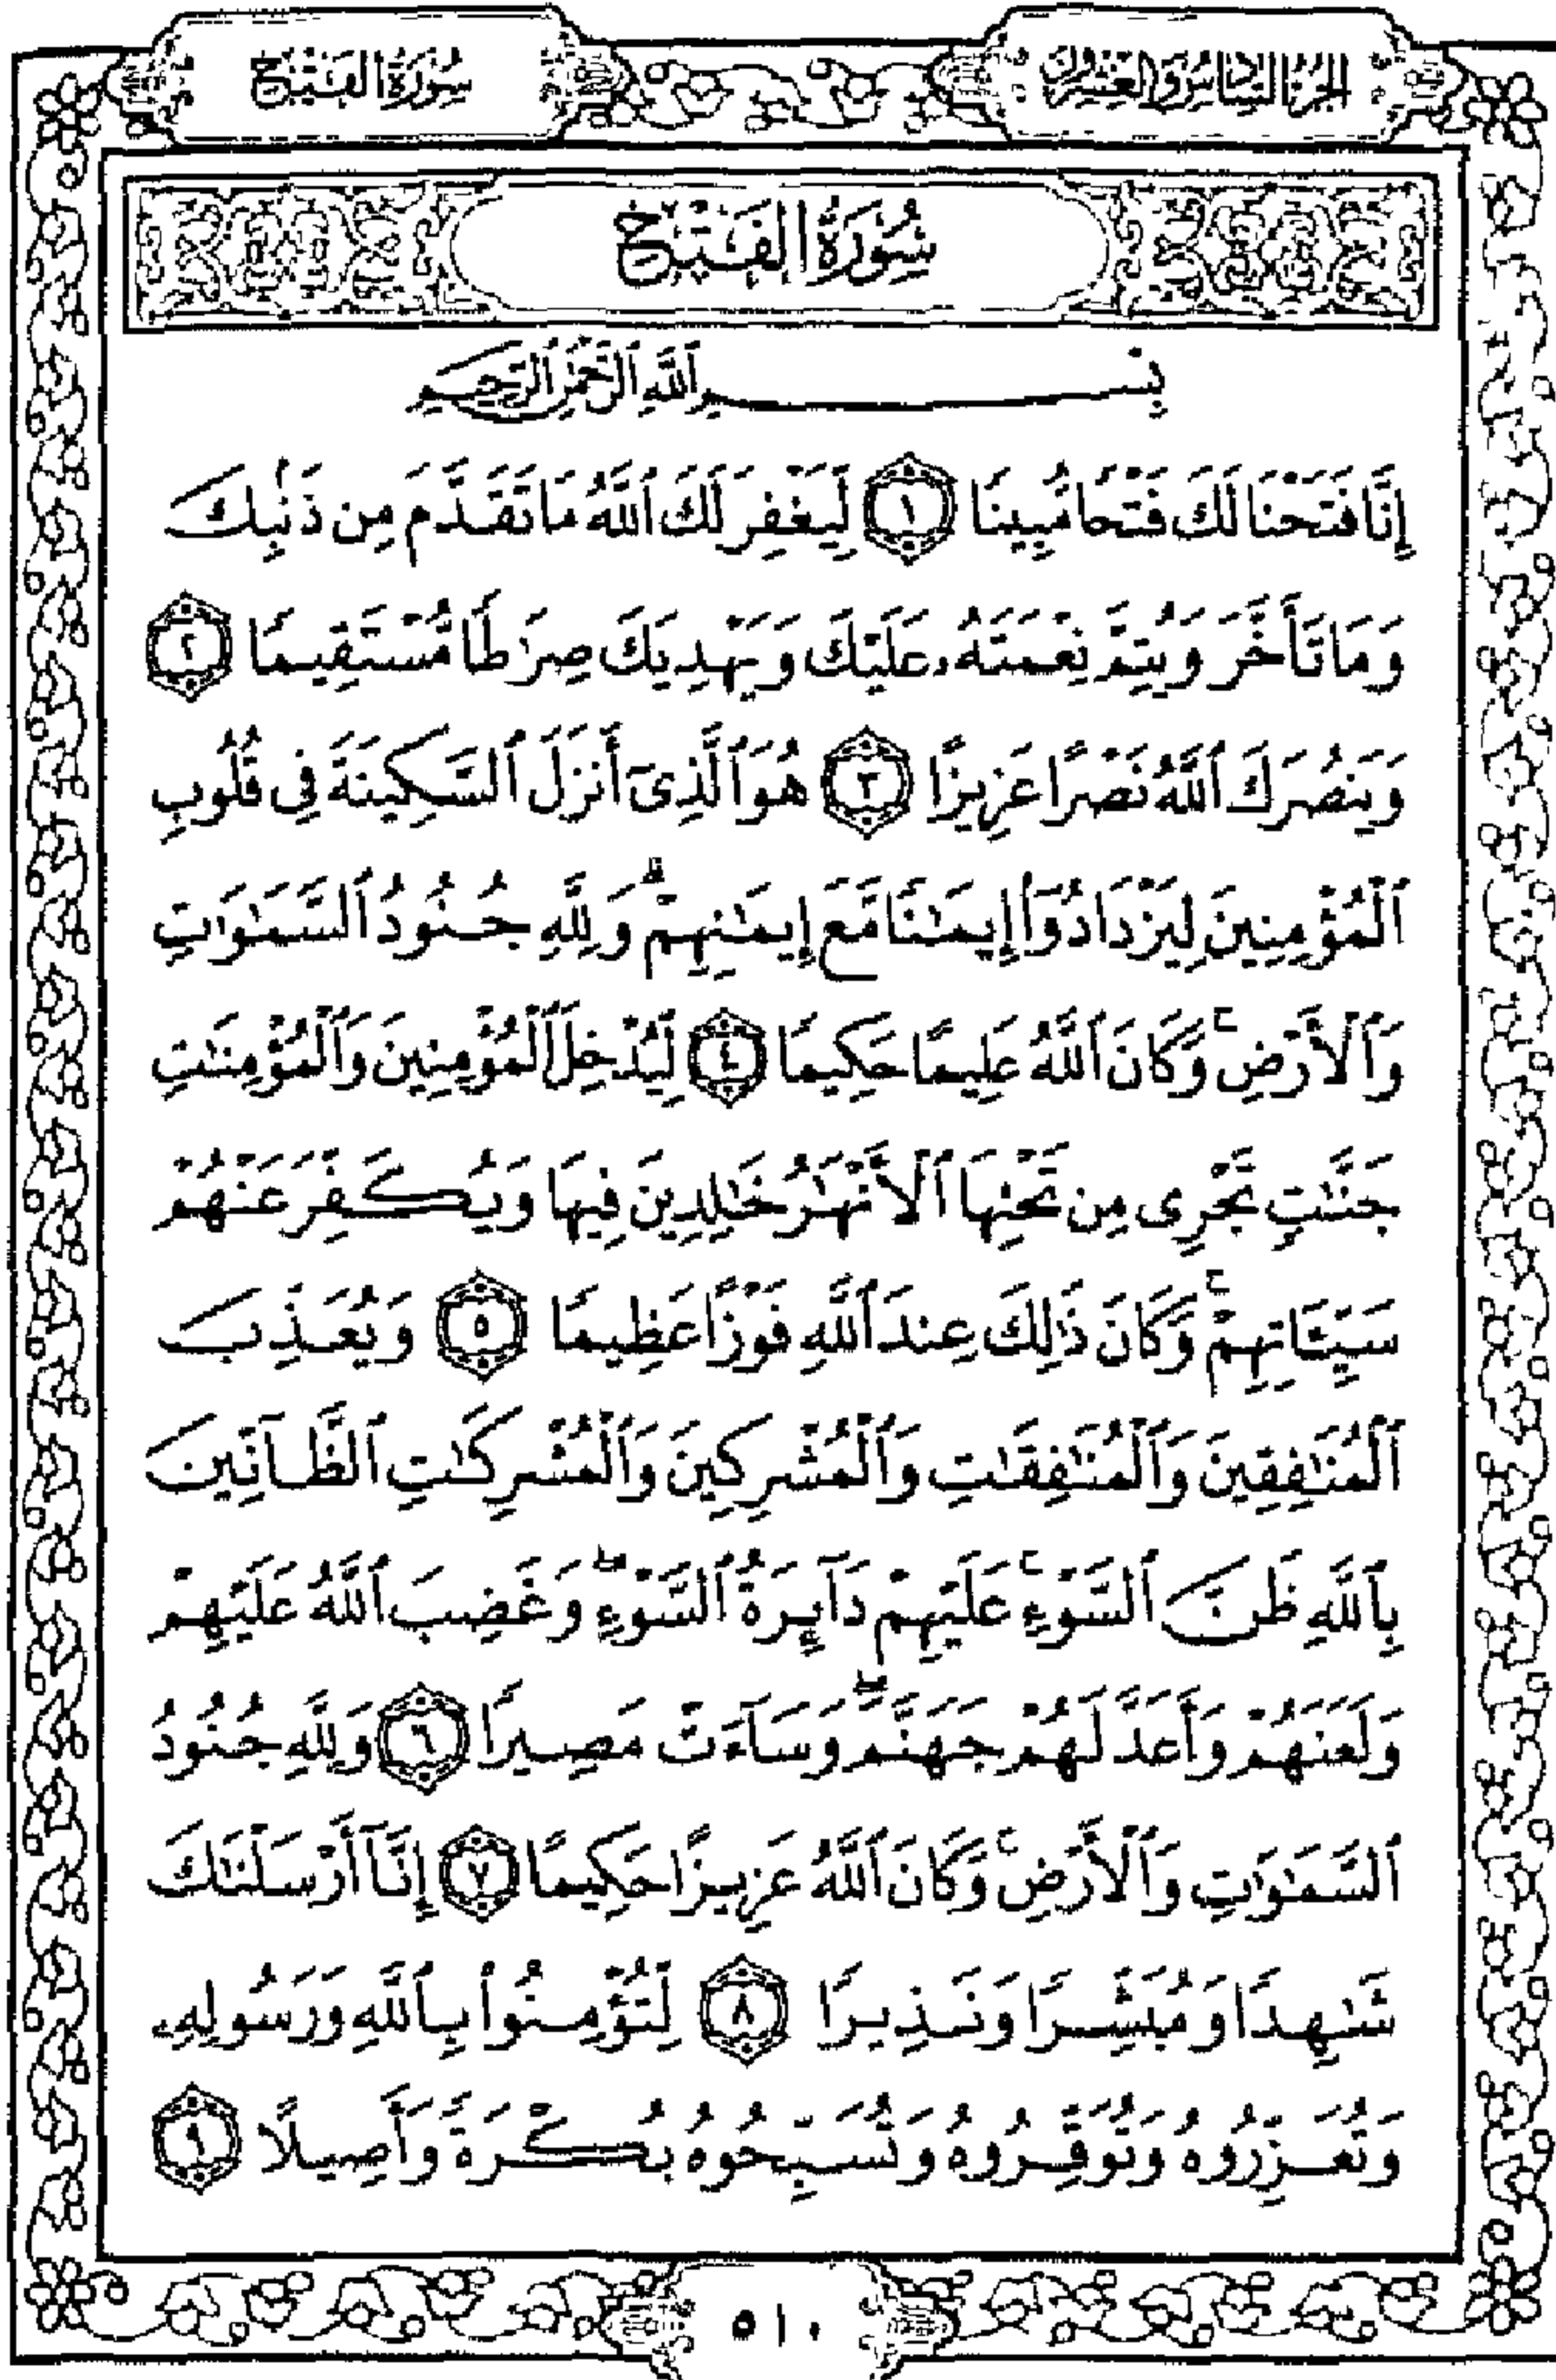 الجزء السادس والعشرون
سورة الفتح
سُورَةُ الفَتْحِ
بِسْمِ ٱللَّهِ ٱلرَّحْمَٰنِ ٱلرَّحِيمِ
إِنَّا فَتَحْنَا لَكَ فَتْحًا مُّبِينًا ١ لِّيَغْفِرَ لَكَ ٱللَّهُ مَا تَقَدَّمَ مِن ذَنۢبِكَ
وَمَا تَأَخَّرَ وَيُتِمَّ نِعْمَتَهُۥ عَلَيْكَ وَيَهْدِيَكَ صِرَٰطًا مُّسْتَقِيمًا ٢
وَيَنصُرَكَ ٱللَّهُ نَصْرًا عَزِيزًا ٣ هُوَ ٱلَّذِىٓ أَنزَلَ ٱلسَّكِينَةَ فِى قُلُوبِ
ٱلْمُؤْمِنِينَ لِيَزْدَادُوٓا۟ إِيمَٰنًا مَّعَ إِيمَٰنِهِمْ ۗ وَلِلَّهِ جُنُودُ ٱلسَّمَٰوَٰتِ
وَٱلْأَرْضِ ۚ وَكَانَ ٱللَّهُ عَلِيمًا حَكِيمًا ٤ لِّيُدْخِلَ ٱلْمُؤْمِنِينَ وَٱلْمُؤْمِنَٰتِ
جَنَّٰتٍ تَجْرِى مِن تَحْتِهَا ٱلْأَنْهَٰرُ خَٰلِدِينَ فِيهَا وَيُكَفِّرَ عَنْهُمْ
سَيِّـَٔاتِهِمْ ۚ وَكَانَ ذَٰلِكَ عِندَ ٱللَّهِ فَوْزًا عَظِيمًا ٥ وَيُعَذِّبَ
ٱلْمُنَٰفِقِينَ وَٱلْمُنَٰفِقَٰتِ وَٱلْمُشْرِكِينَ وَٱلْمُشْرِكَٰتِ ٱلظَّآنِّينَ
بِٱللَّهِ ظَنَّ ٱلسَّوْءِ ۚ عَلَيْهِمْ دَآئِرَةُ ٱلسَّوْءِ ۖ وَغَضِبَ ٱللَّهُ عَلَيْهِمْ
وَلَعَنَهُمْ وَأَعَدَّ لَهُمْ جَهَنَّمَ ۖ وَسَآءَتْ مَصِيرًا ٦ وَلِلَّهِ جُنُودُ
ٱلسَّمَٰوَٰتِ وَٱلْأَرْضِ ۚ وَكَانَ ٱللَّهُ عَزِيزًا حَكِيمًا ٧ إِنَّآ أَرْسَلْنَٰكَ
شَٰهِدًا وَمُبَشِّرًا وَنَذِيرًا ٨ لِّتُؤْمِنُوا۟ بِٱللَّهِ وَرَسُولِهِۦ
وَتُعَزِّرُوهُ وَتُوَقِّرُوهُ وَتُسَبِّحُوهُ بُكْرَةً وَأَصِيلًا ٩
٥١٠